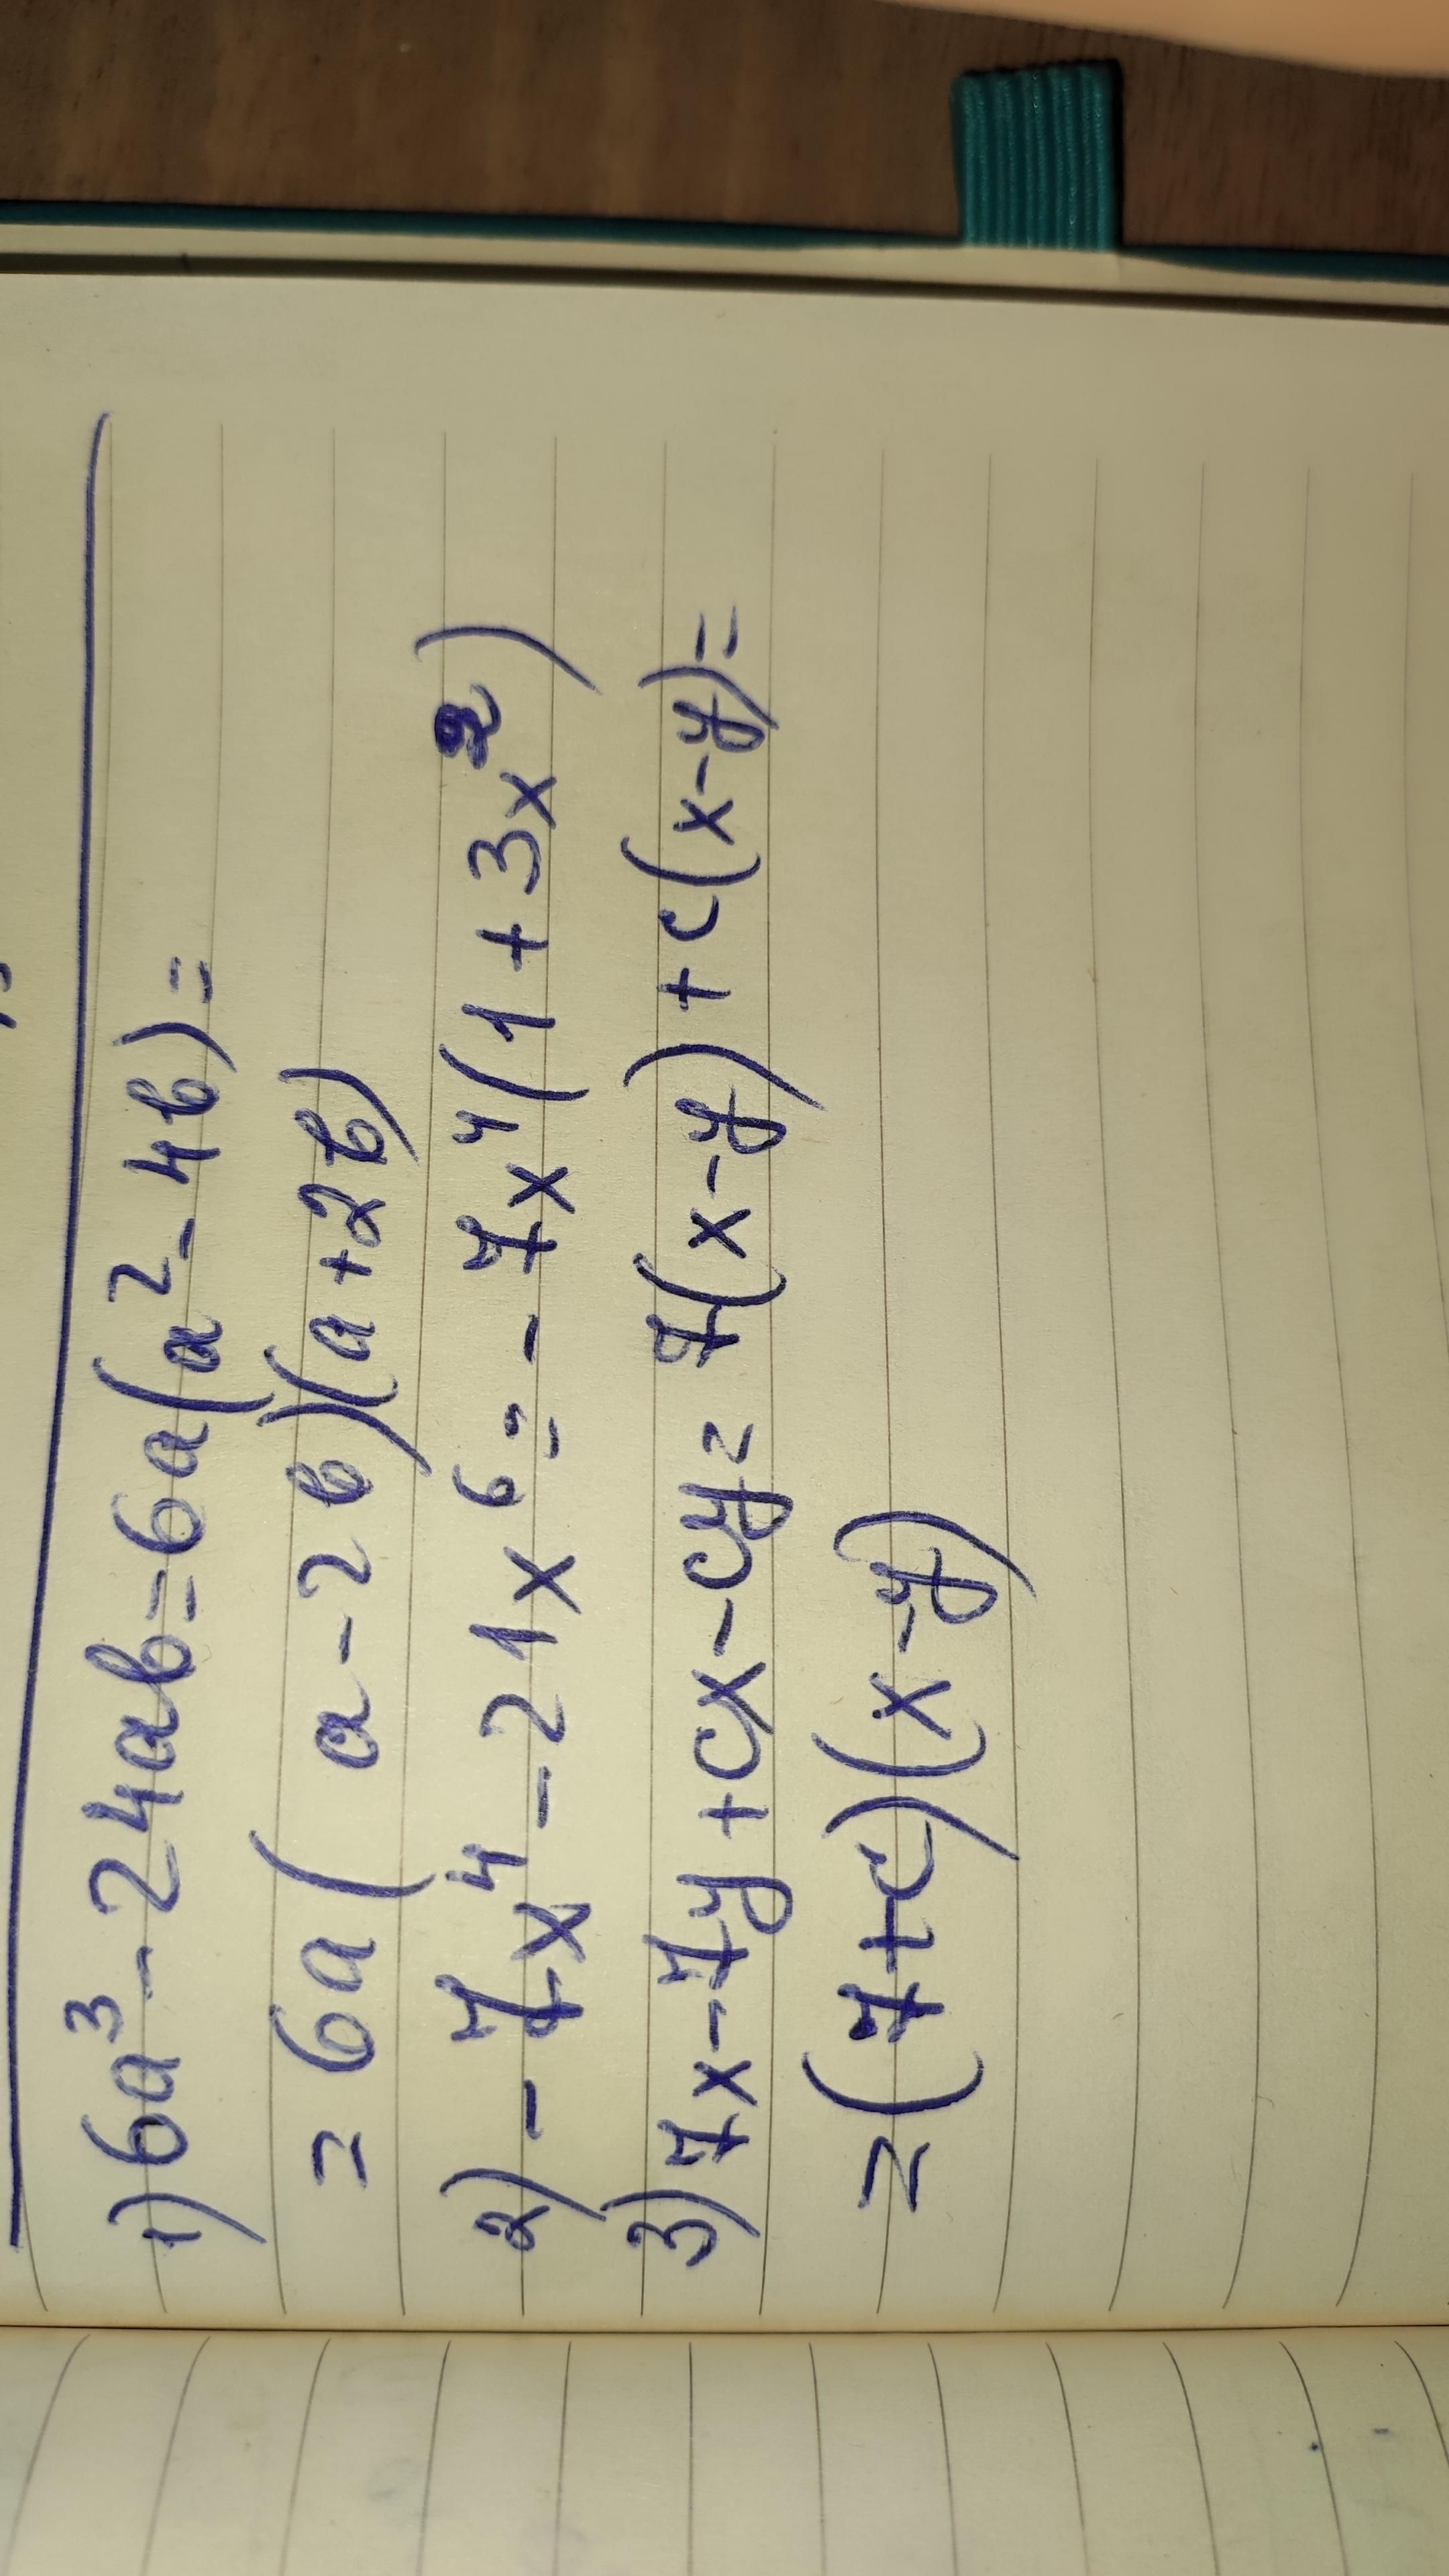 1) 6a³ - 24ab = 6a(a² - 4b) =
= 6a( a - 2b)(a + 2b)
2) - 7x⁴ - 21x⁶ = - 7x⁴(1 + 3x²)
3) 7x - 7y + cx - cy = 7(x - y) + c(x - y) =
= (7 + c)(x - y)